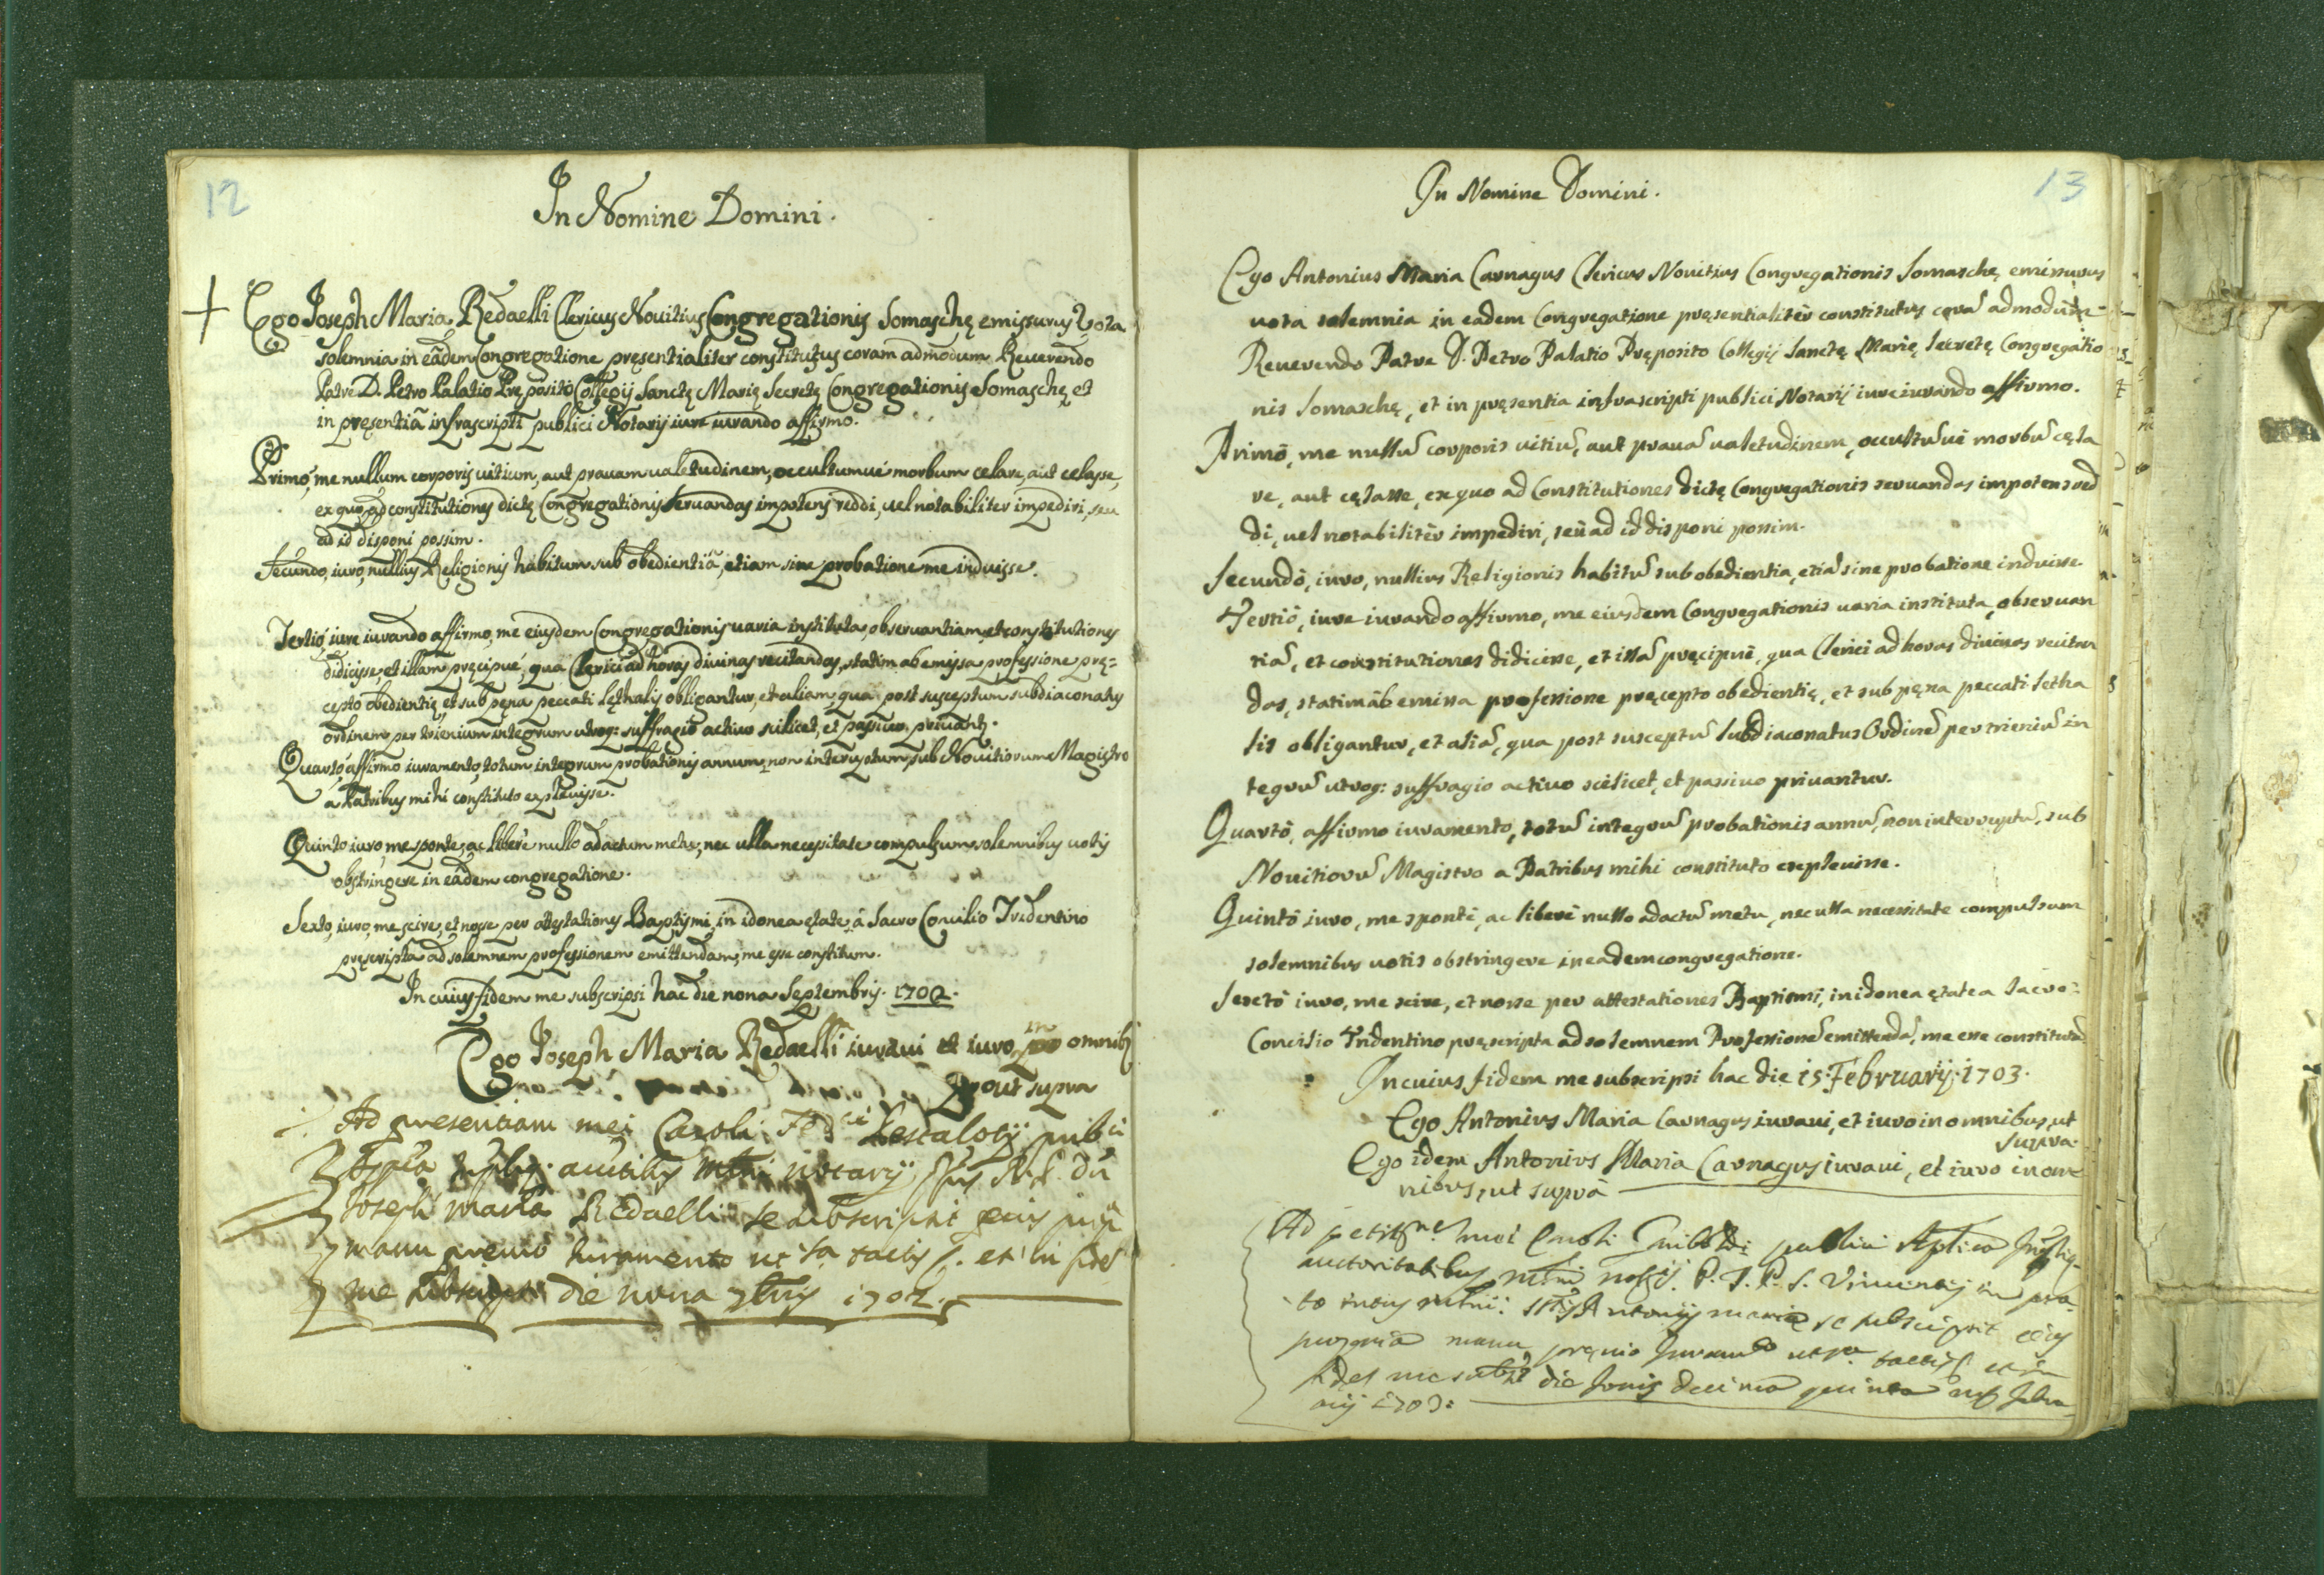 12
In Nomine Domini.
Ego Joseph Maria Redaelli Clericus Nouitius Congregationis Somaschę emissurus Vota
solemnia in eadem Congregatione pręsentialiter constitutus coram admodum Reuerendo
Patre D. Petro Palatio Pręposito Collegij Sanctę Marię Secretę Congregationis Somaschę et
in pręsentiâ infrascripti publici Notarij iure iurando affirmo.
Primo, me nullum corporis uitium, aut prauam ualetudinem, occultumué morbum celare, aut celasse,
ex quo ad constitutiones dictę Congregationis seruandas impotens reddi, uel notabiliter impediri, seu
ad id disponi possim.
Secundo, iuro, nullius Religionis habitum sub obedientiâ, etiam sine probatione me induisse.
Tertió iure iurando affirmo, me eiusdem Congregationis uaria instituta, obseruantiam, et constitutiones
didicisse, et illam pręcipué, qua Clerici ad horas diuinas recitandas, statim ab emissa professione prę=
cepto obedientię, et sub pęna peccati lęthalis obligantur, et aliam, qua post susceptum subdiaconatus
ordinem per trienium integrum utroq: suffragio actiuo scilicet, et passiuo priuantr.
Quartó affirmo iuramento, totum integrum probationis annum, non interruptum, sub Nouitiorum Magistro
a Patribus mihi constituto expleuisse.
Quinto iuro, me sponte, ac liberé nullo adactum metu, nec ulla necessitate compulsum solemnibus uotis
obstringere in eâdem congregatione.
Sexto, iuro, me scire, et nosse per attestationes Baptismi, in idonea ętate, á Sacro Concilio Tridentino
pręscripta ad solemnem professionem emittendam, me esse constitum.
In cuius fidem me subscripsi hac die nona Septembris. 1702.
Ego Joseph Maria Redaelli iuraui et iuro in omnibs
prout supra
Ad presentiam mei Caroli Pestalotij publi
notarij
Joseph Maria Redaelli se subscripsit
manu iuramento tactis et in fid
me die nona 7bris 1702.
13
In Nomine Domini.
Ego Antonius Maria Carnagus Clericus Nouitius Congregationis Somaschę emissurus
uota solemnia in eadem Congregatione pręsentialitèr constitutus corã admodum
Reuerendo Patre D. Petro Palatio Pręposito Collegij Sanctę Marię Secretę Congregatio
nis Somaschę, et in pręsentia infrascripti publici Notarij iure iurando affirmo.
Primò, me nullũ corporis uitiũ, aut prauã ualetudinem, occultũuè morbũ cęla
re, aut cęlasse, ex quo ad Constitutiones dictę Congregationis seruandas impotens red
di, uel notabilitèr impediri, seù ad id disponi possim.
Secundò, iuro, nullius Religionis habitũ sub obedientia, etiã sine probatione induisse.
Tertiò, iure iurando affirmo, me eiusdem Congregationis uaria instituta, obseruan
tiã, et constitutiones didicisse, et illã pręcipuè, qua Clerici ad horas diuinas recitan
das, statim ab emissa professione pręcepto obedientię, et sub pęna peccati letha
lis obligantur, et aliã, qua post susceptũ Subdiaconatus Ordinẽ per trieniũ in
tegrũ utroq: suffragio actiuo scilicet, et passiuo priuantur.
Quartò, affirmo iuramento, totũ integrũ probationis annũ, non interruptũ, sub
Nouitiorũ Magistro a Patribus mihi constituto expleuisse.
Quintò iuro, me spontè, ac liberè nullo adactũ metu, nec ulla necessitate compulsum
solemnibus uotis obstringere in eadem congregatione.
Sextò iuro, me scire, et nosse per attestationes Baptismi, in idonea ętate a Sacro
Concilio Tridentino pręscripta ad solemnem Professionẽ emittendã, me esse constitutũ
In cuius fidem me subscripsi hac die 15. Februarij. 1703.
Ego Antonius Maria Carnagus iuraui, et iuro in omnibus, ut
supra.
Ego idem Antonius Maria Carnagus iuraui, et iuro in om
nibus, ut suprà
Ad mei Caroli publici
auctoritatibus P. S. Vincentij in pra
to Antonij Maria se subscripsit
propria manu, tactis et in
die Jouis decima quinta Febru
arij 1703.